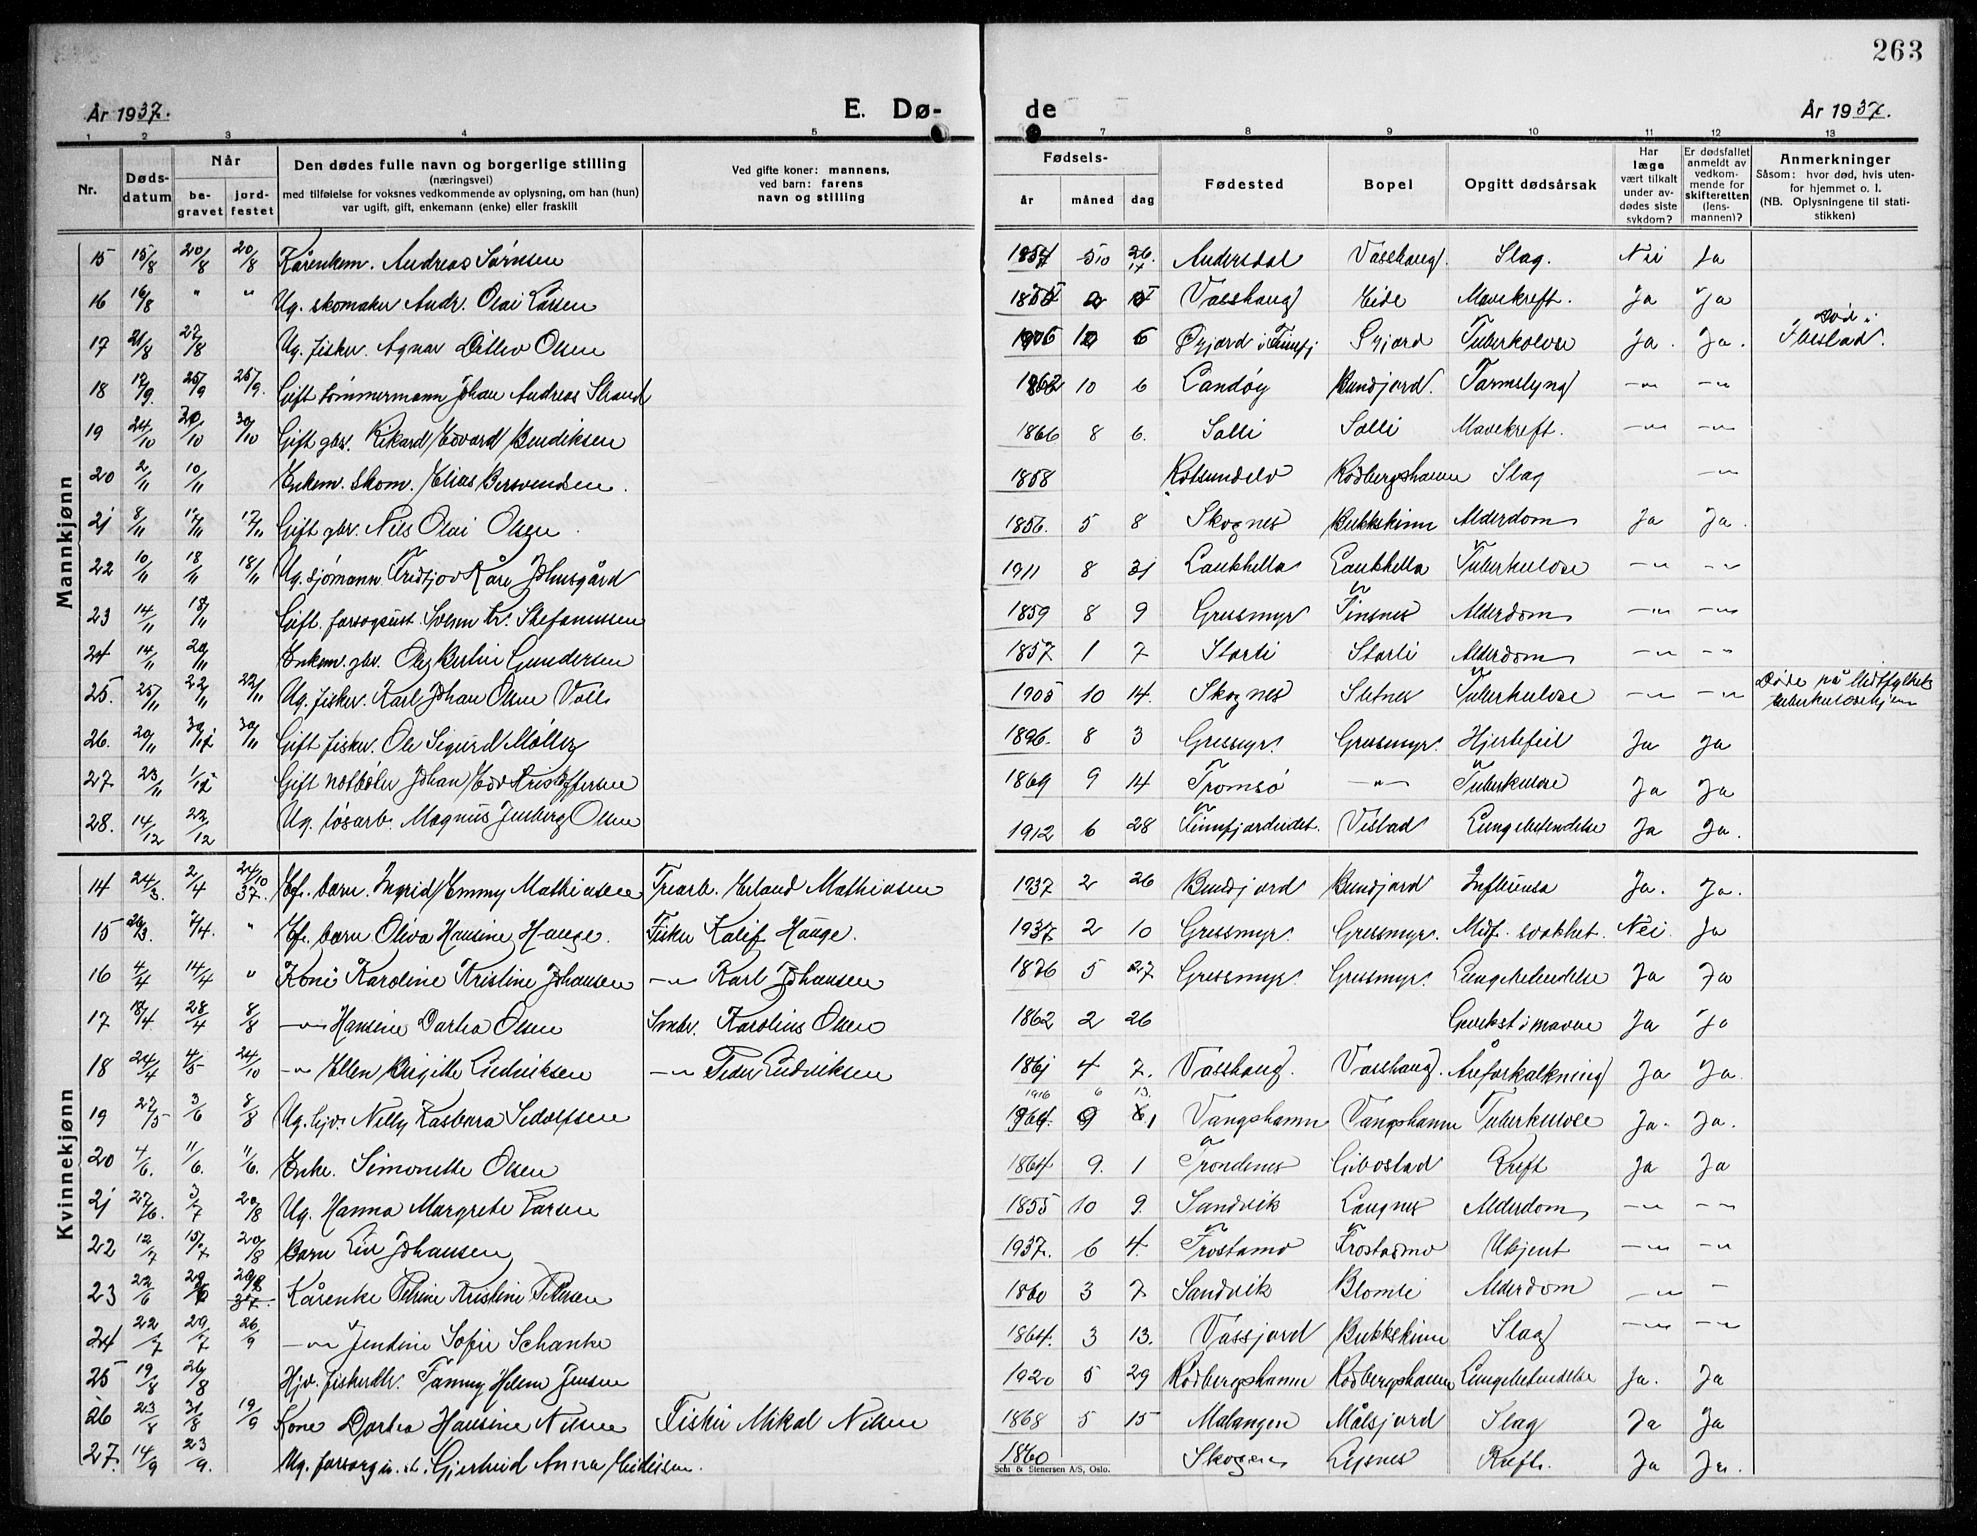 263
År 1937. E. Dø- de År 1937.
1 2 3 4 5 7 8 9 10 11 12 13
Nr. Døds- datum Når be- gravet jord- festet
Den dødes fulle navn og borgerlige stilling
(næringsvei)
med tilføielse for voksnes vedkommende av oplysning, om han (hun)
var ugift, gift, enkemann (enke) eller fraskilt
Ved gifte koner: mannens,
ved barn: farens
navn og stilling
Fødsels- år måned dag
Fødested Bopel Opgitt dødsårsak
Har læge vært tilkalt under av- dødes siste sykdom?
Er dødsfallet anmeldt av vedkom- mende for skifteretten (lens- mannen)?
Anmerkninger
Såsom: hvor død, hvis uten- for hjemmet o. l.
(NB. Oplysningene til stati- stikken)
Mannkjønn
15 15/8 20/8 20/8 Kårenkem. Andreas Sørnsen Andersdal Vasshaug Slag. Nei Ja
16 16/8 " " Ug. skomaker Andr. Olai Larsen Vasshaug Eide Mavekreft. Ja Ja
17 21/8 27/8 Ug. fisker. Agnar Ditlev Olsen 1906 10 6 Tuberkulose Ja. Ja. Død i Ibestad.
18 25/9 25/9. Gift tømmermann Johan Andreas Strand 1862 10 6 Landøy Bundjord. Tarmslyng -"- -"-
19 24/10 30/10 30/10 Gift gbr. Rikard Edvard Bendiksen 1866 8 6. Solli Solli Mavekreft. -"- -"-
20 2/11 10/11 Enkem. skom. Elias Bersvendsen. 1858 Rotsundelv Rødbergshamn Slag -"-
21 8/11 17/11 17/11 Gift gbr. Nils Olai Olsen. 1856. 5 8 Skognes Bukkskinn Alderdom Ja Ja.
22 10/11 18/11 18/11 Ug. sjømann Fredtjov Kåre Johnsgård 1911 8 31 Laukhella Laukhella Tuberkulose -"- -"-
23 14/11 18/11 Gift. forsøgsust. Johan Kr. Stefanussen 1859 8 9 Gressmyr Finsnes Alderdom -"- -"-
24 14/11 20/11 Enkem. gbr. Ole Bertin Gundersen 1857 1 7 Storli Storli Alderdom -"- -"-
25. 22/11 22/11 Ug. fisker. Karl Johan Olsen Voll 1905 10 14. Skognes Sletnes Tuberkulose -"- -"- Døde på Midtfylkets tuberkulosehjem
26. 20/11 30/11 30/11 Gift fisker. Ole Sigurd Møller 1896. 8 3 Gressmyr. Gressmyr. Hjertefeil Ja Ja
27. 23/11 1/12 Gift notbøter Johan Edv Kristoffersen 1869 9 14 Tromsø -"- Tuberkulose Ja Ja
28. 14/12 22/12 Ug. løsarb. Magnus Olsen 1912 6 28 Finnfjordeidet. Vistad Lungebetendelse Ja Ja.
Kvinnekjønn
14 24/3 2/4 24/10 37. Ef. barn. Ingrid Emmy Mathiasen Trearb. Erland Mathiasen 1937 2 26 Bundjord Bundjord Influensa Ja. Ja.
15 26/3. 7/4. " Ef. barn Oliva Hansine Hauge. Fisker Kalif Hauge. 1937. 2 10 Gressmyr. Gressmyr. Midf. svakhet. Nei. Ja
16 4/4 14/4 " Kone Karoline Kristine Johansen -"- Karl Johansen 1876 5 27 Gressmyr. Gressmyr. Lungebetendelse Ja Ja
17 18/4 28/4 8/8 -"- Hansine Dortea Olsen Smbr. Karolius Olsen 1862 2 26 Gvekst i mavne Ja Ja
18 24/4 4/5 24/10 -"- Ellen Birgitte Ludviksen -"- Peder Ludviksen 1861 4 7. Vasshaug. Vasshaug. Åreforkalkning Ja Ja.
19 27/5 3/6 8/8 Ug. hjv. Nelly Kasbara Sedolfsen 1916 6 13. Vangshamn Vangshamn Tuberkulose Ja. Ja.
20 4/6. 11/6. 11/6. Enke. Simonette Olsen 1864 9. 1 Trondenes Gibostad Kreft Ja Ja
21 27/6. 3/7 20/8 Ug. Hanna Margrete Larsen 1855 10 9. Sandvik Laugnes Alderdom -"- -"-
22 12/7 15/7 20/8 Barn Liv Johansen 1937. 6 4. Frostamo Frostadmo Ukjent -"- -"-
23 22/6 Kårenke Petrine Kristine Petersen 1860 3 7 Sandvik Blomli Alderdom -"- -
24 22/7 29/7 26/9 -"- Jendine Sofie Schanke 1864. 3 13. Vassjord Bukkskinn Slag -"- -"-
25 19/8 26/8 Hjv. fiskerdtr. Fanny Helene Jensen 1920 5 29 Rødbergshamn Rødbergshamn Lungebetendelse Ja. Ja
26 23/8 31/8 19/9 Kone Dortea Hansine Nilsen Fisker Mikal Nilsen 1868 5 15 Malangen Målsjord Slag Ja Ja
27. 14/9 23/9. Ug. forsørg. Gjertrud Anna 1860 Skogen Lysnes Kreft. Ja Ja.
Sem & Stenersen A/S, Oslo.